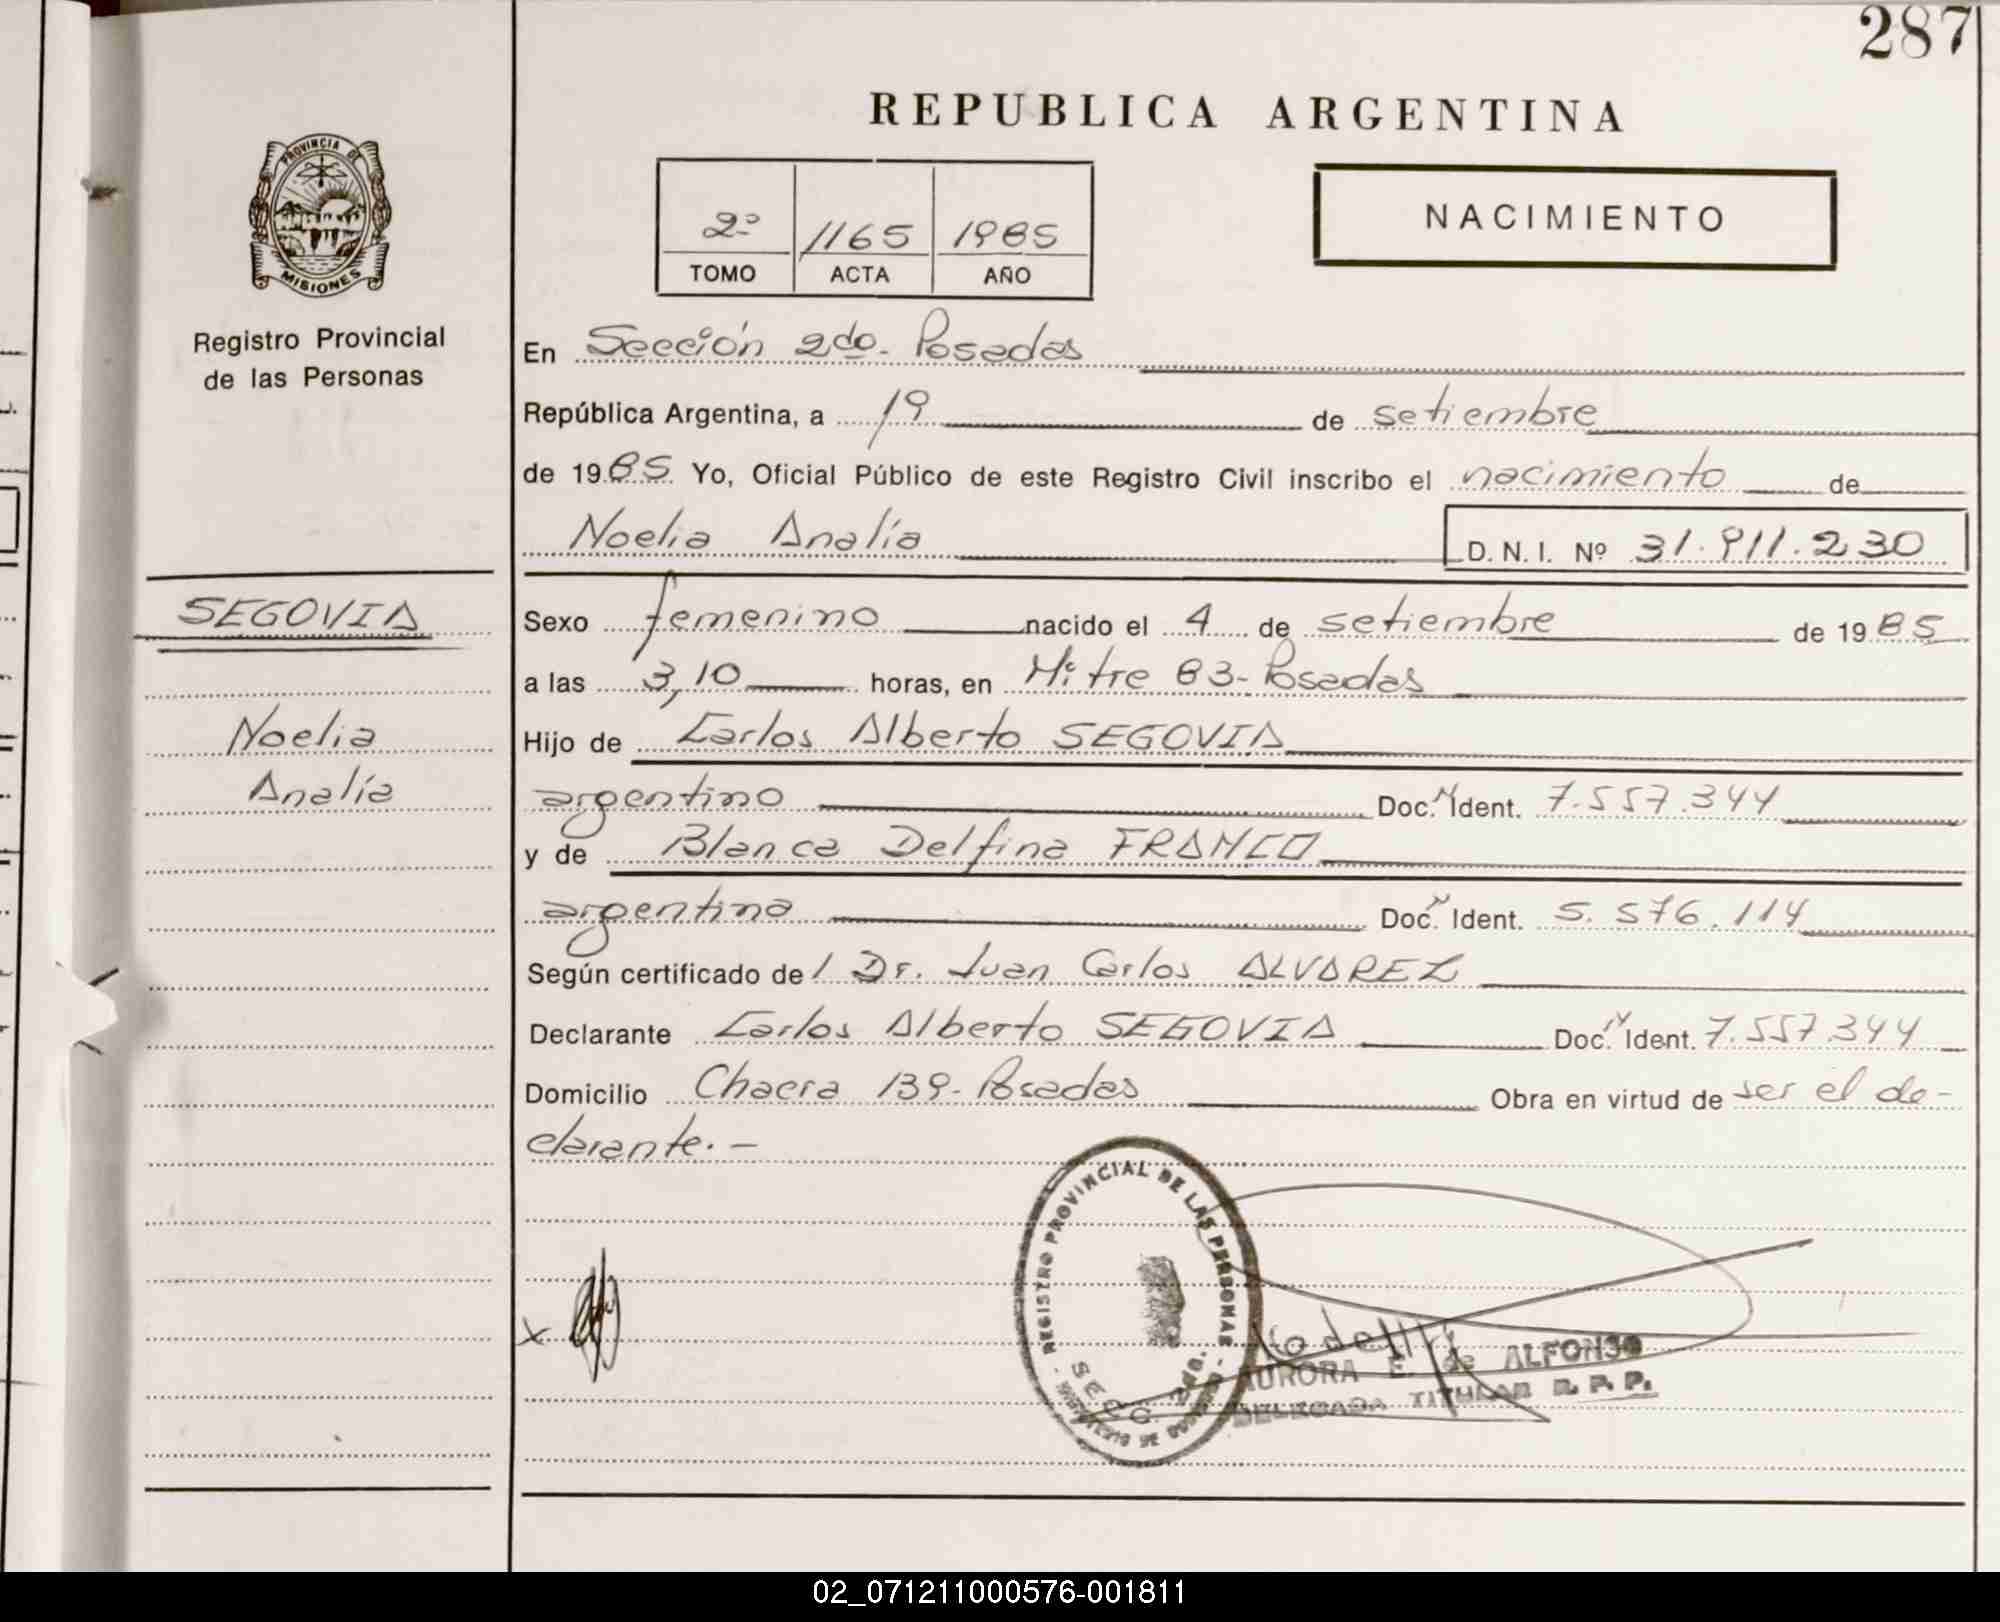 287
REPUBLICA ARGENTINA
PROVINCIA DE
MISIONES
Registro Provincial
de las Personas
2º 1165 1985
TOMO ACTA AÑO
NACIMIENTO
En Sección 2do. Posadas
República Argentina, a 19 de setiembre
de 1985 Yo, Oficial Público de este Registro Civil inscribo el nacimiento de
Noelia Analía D. N. I. Nº 31.911.230
SEGOVIA
Noelia
Analía
Sexo femenino nacido el 4 de setiembre de 1985
a las 3,10 horas, en Mitre 83-Posadas
Hijo de Carlos Alberto SEGOVIA
argentino Doc. Ident. 7.557.344
y de Blanca Delfina FRANCO
argentina Doc. Ident. 5.576.114
Según certificado de / Dr. Juan Carlos ALVAREZ
Declarante Carlos Alberto SEGOVIA Doc. Ident. 7.557.344
Domicilio Chacra 139-Posadas Obra en virtud de ser el de-
clarante.-
REGISTRO PROVINCIAL DE LAS PERSONAS
SECC. 2da.
x
AURORA E. de ALFONSO
DELEGADA TITULAR R. P. P.
02_071211000576-001811